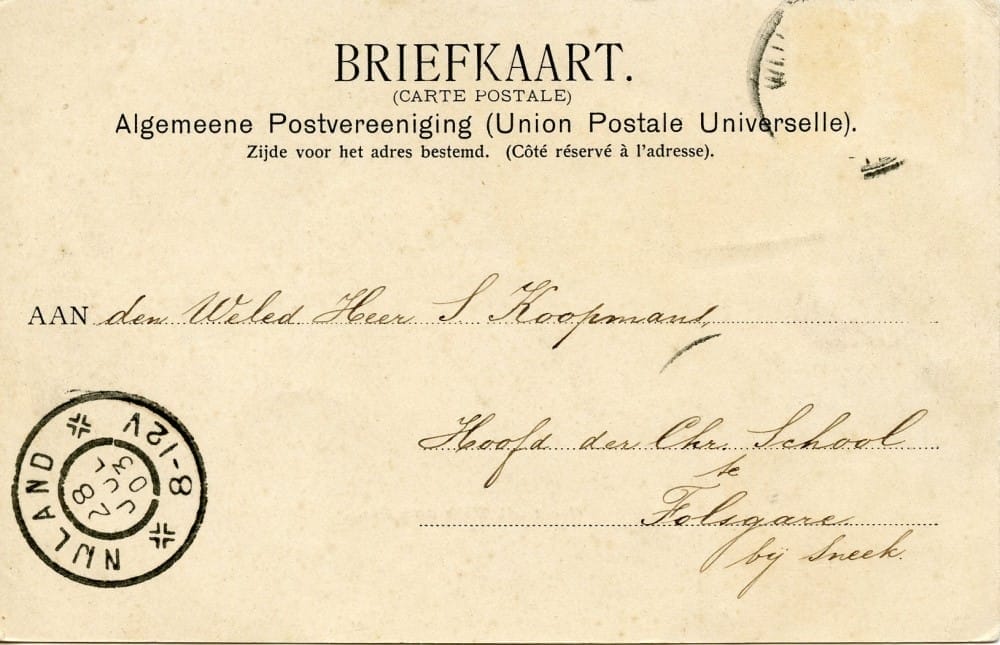 BRIEFKAART.
(CARTE POSTALE)
Algemeene Postvereeniging (Union Postale Universelle).
Zijde voor het adres bestemd. (Côté réservé à l'adresse).
AAN den Weled Heer S Koopmans,
Hoofd der Chr. School
te
Folsgare
bij Sneek.
NIJLAND
8-12V
28
JUL
03